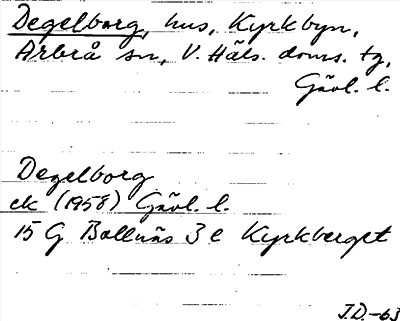 Degelborg, hus, Kyrkbyn,
Arbrå sn, V. Häls. doms. tg,
Gävl. l.
Degelborg
ek (1958) Gävl. l.
15 G Bollnäs 3 e Kyrkberget
J.D.-63